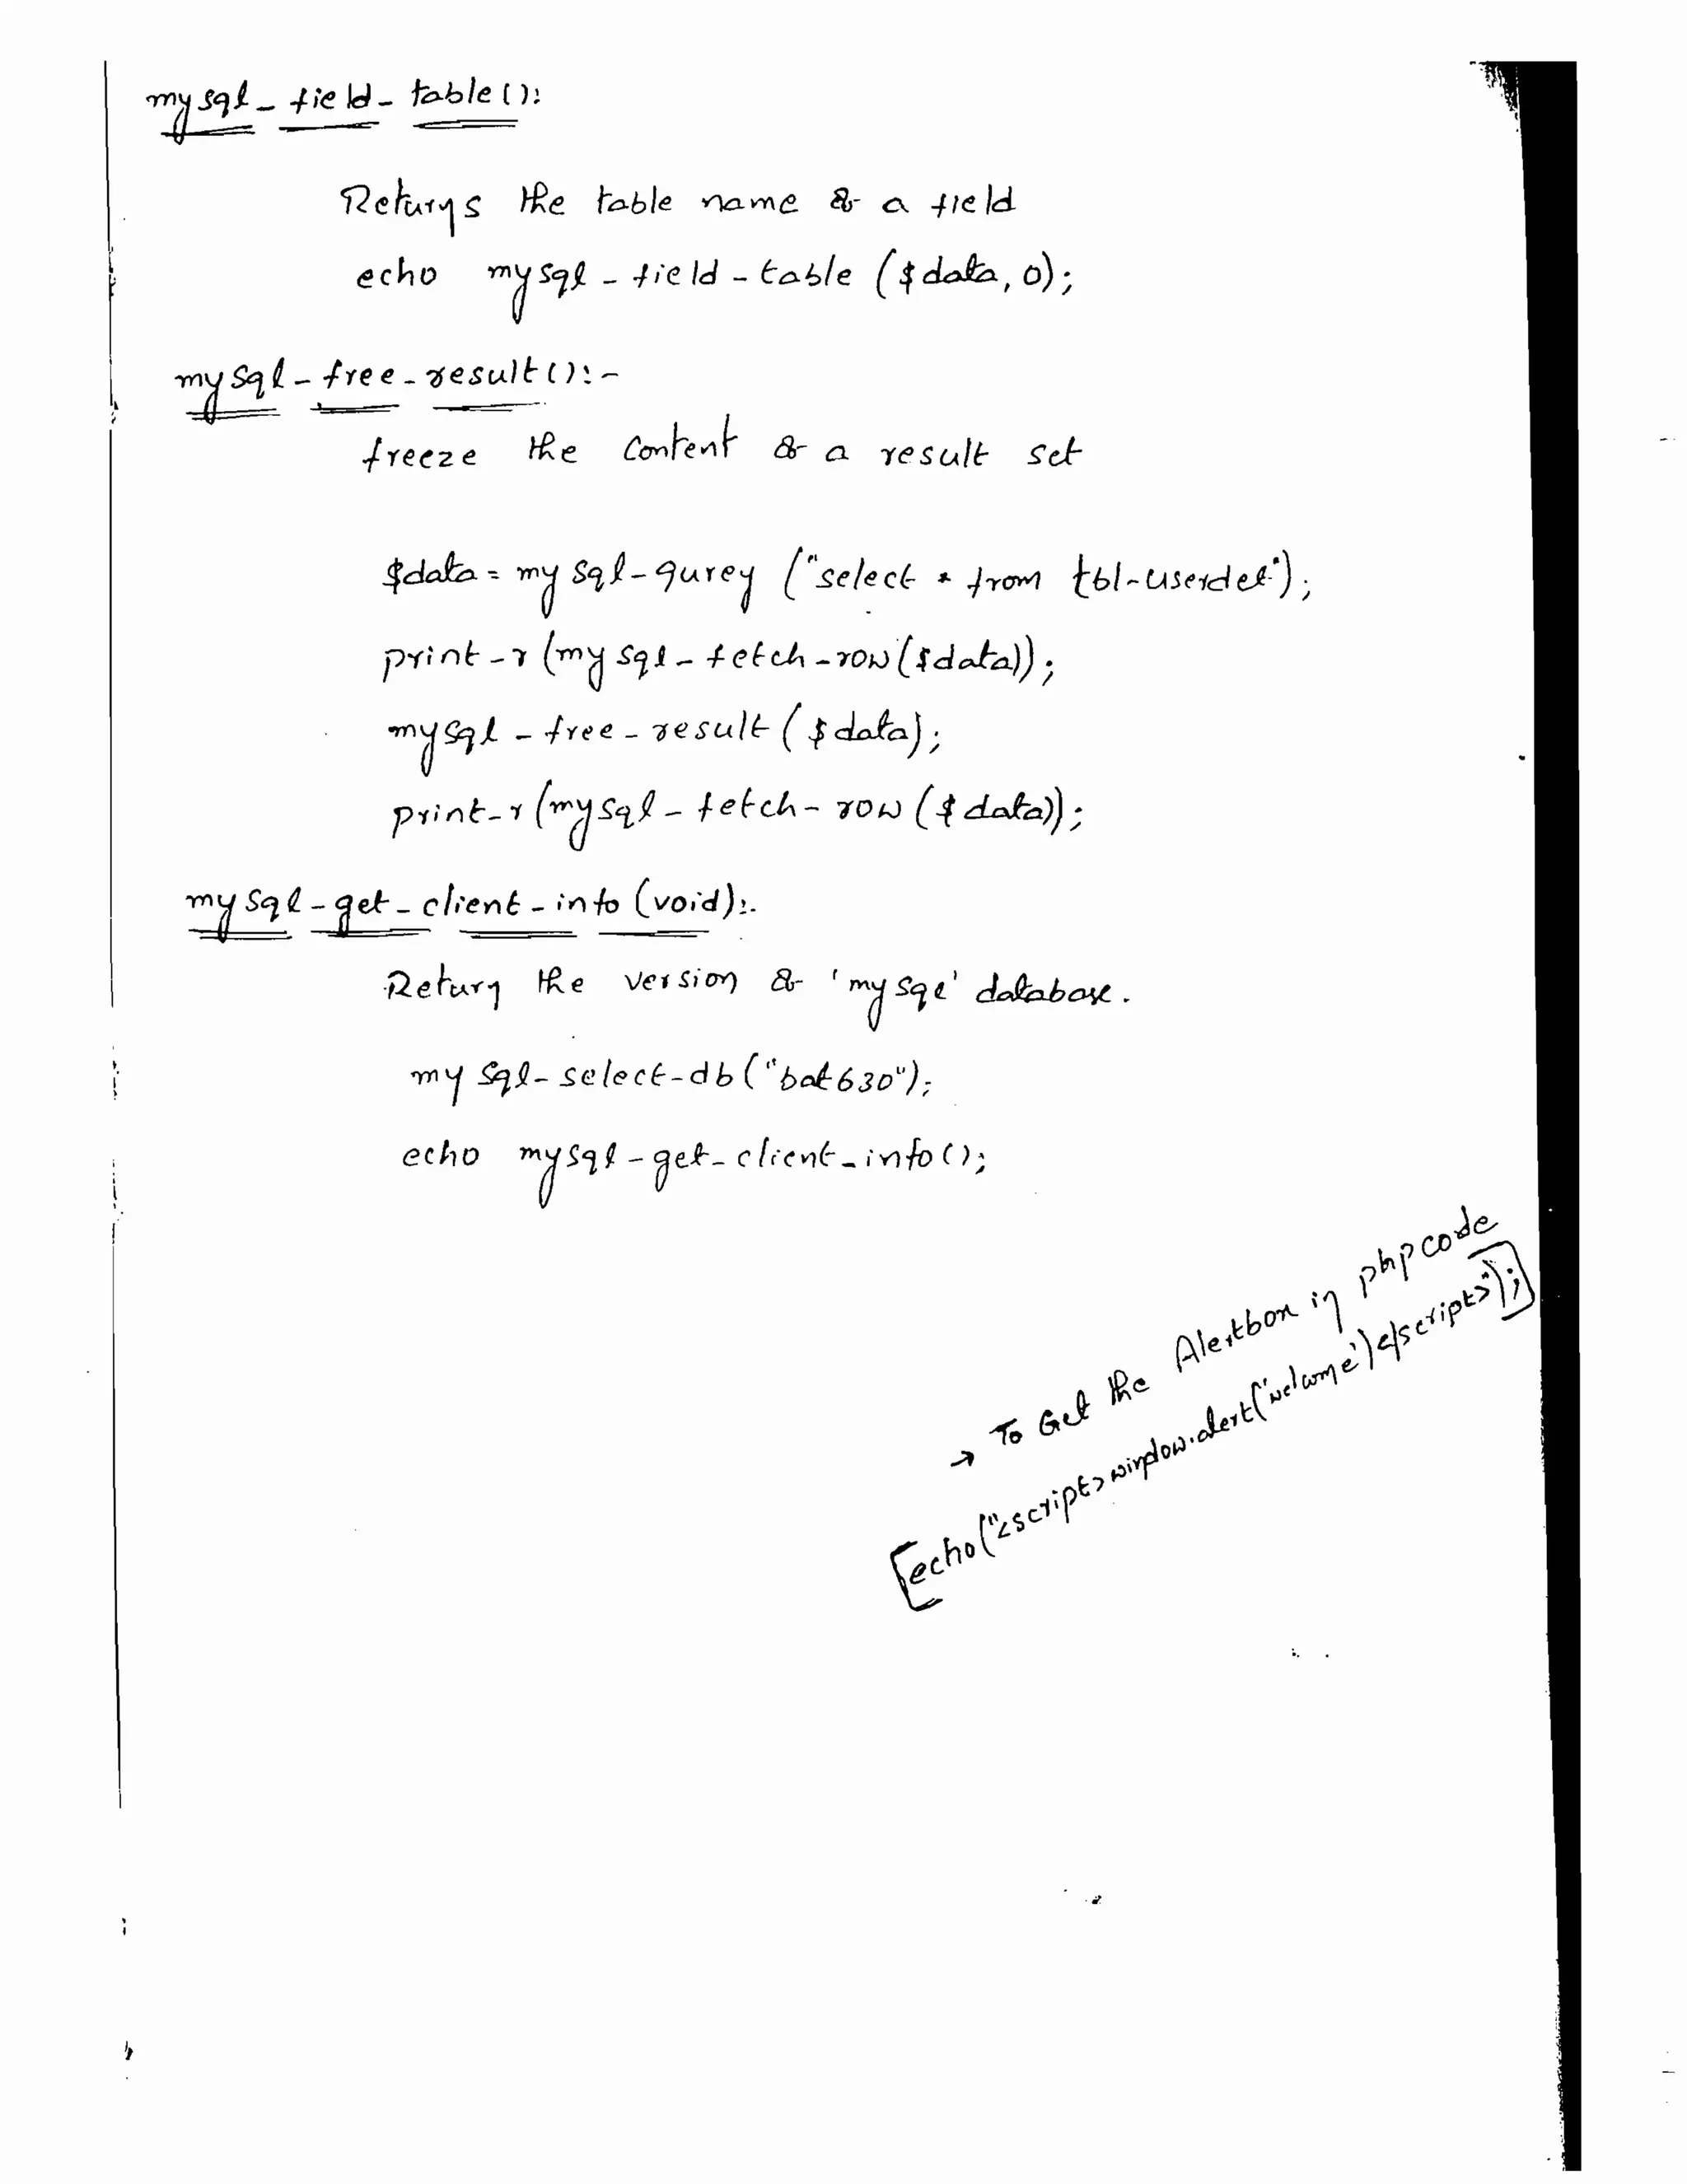 mysql_field_table():
Returns the table name of a field
echo mysql_field_table ($data, 0);
mysql_free_result():-
freeze the content of a result set
$data = mysql_qurey ("select * from tbl_userdet");
print_r (mysql_fetch_row($data));
mysql_free_result ($data);
print_r (mysql_fetch_row ($data));
mysql_get_client_info (void):-
Return the version of 'mysql' database.
mysql_select_db ("bat630");
echo mysql_get_client_info();
→ To Get the Alertbox in php code
[echo("<script>window.alert('welcome')</script>");]